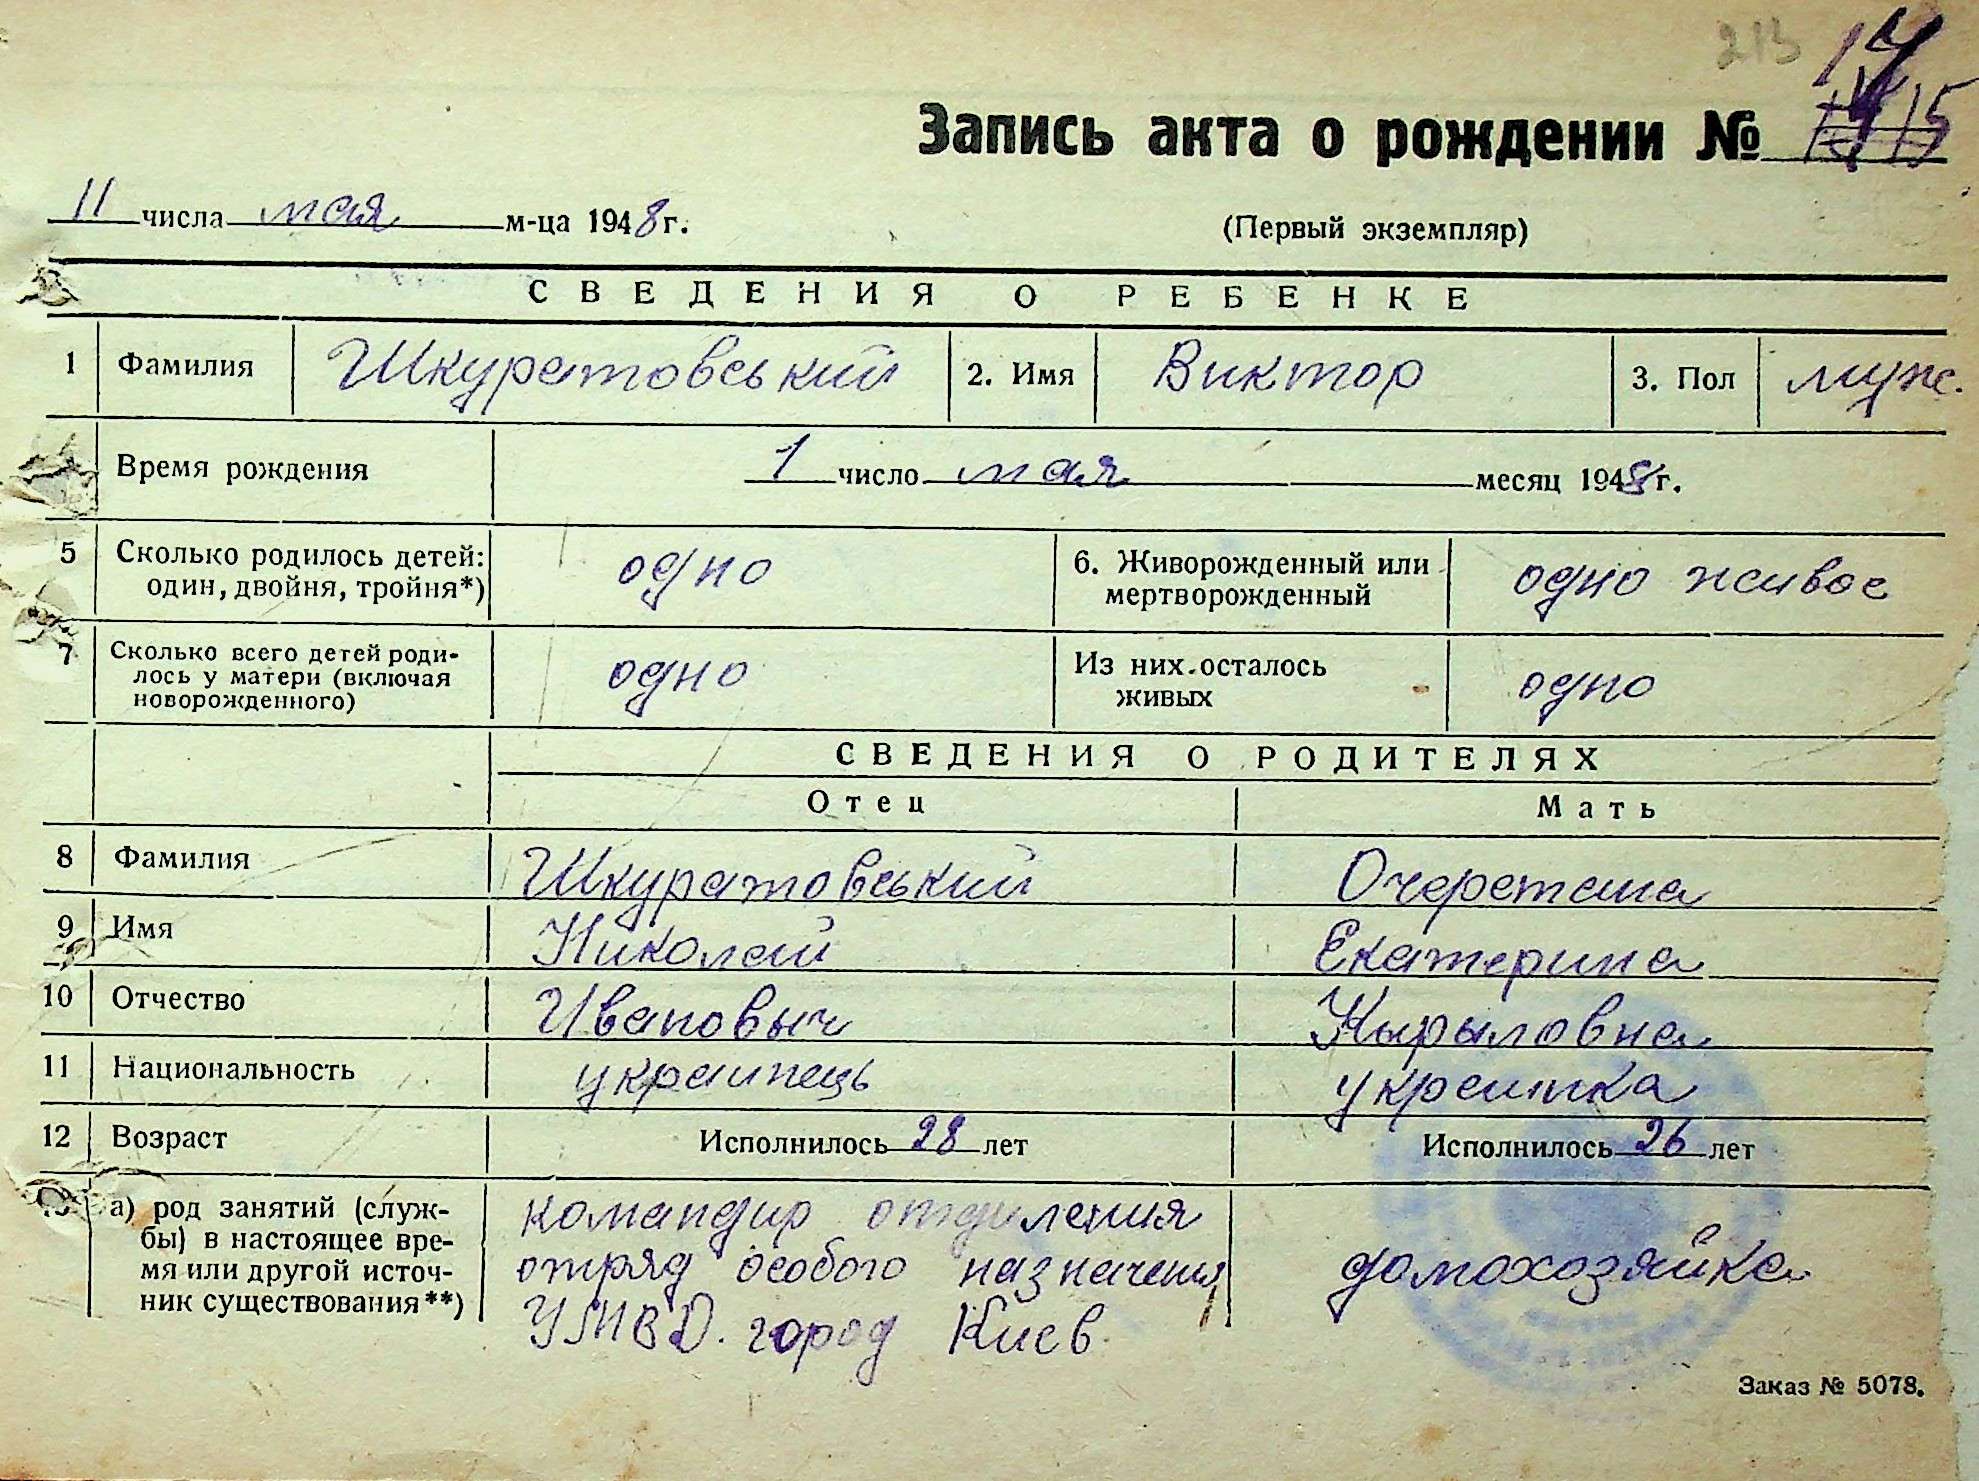 213
17
Запись акта о рождении №
11 числа мая м-ца 1948г. (Первый экземпляр)
СВЕДЕНИЯ О РЕБЕНКЕ
1 Фамилия Шкуратовський 2. Имя Виктор 3. Пол муж.
Время рождения 1 число мая месяц 1948г.
5 Сколько родилось детей: один, двойня, тройня*) одно 6. Живорожденный или мертворожденный одно живое
7 Сколько всего детей роди-
лось у матери (включая
новорожденного) одно Из них осталось живых одно
СВЕДЕНИЯ О РОДИТЕЛЯХ
Отец Мать
8 Фамилия Шкуратовський Очеретяна
9 Имя Николай Екатерина
10 Отчество Ивановыч Кырыловна
11 Национальность украинець украинка
12 Возраст Исполнилось 28 лет Исполнилось 26 лет
а) род занятий (служ-
бы) в настоящее вре-
мя или другой источ-
ник существования**)
командир отдиления
отряд особого назначения
УМВД. город Киев.
домохозяйка
Заказ № 5078.